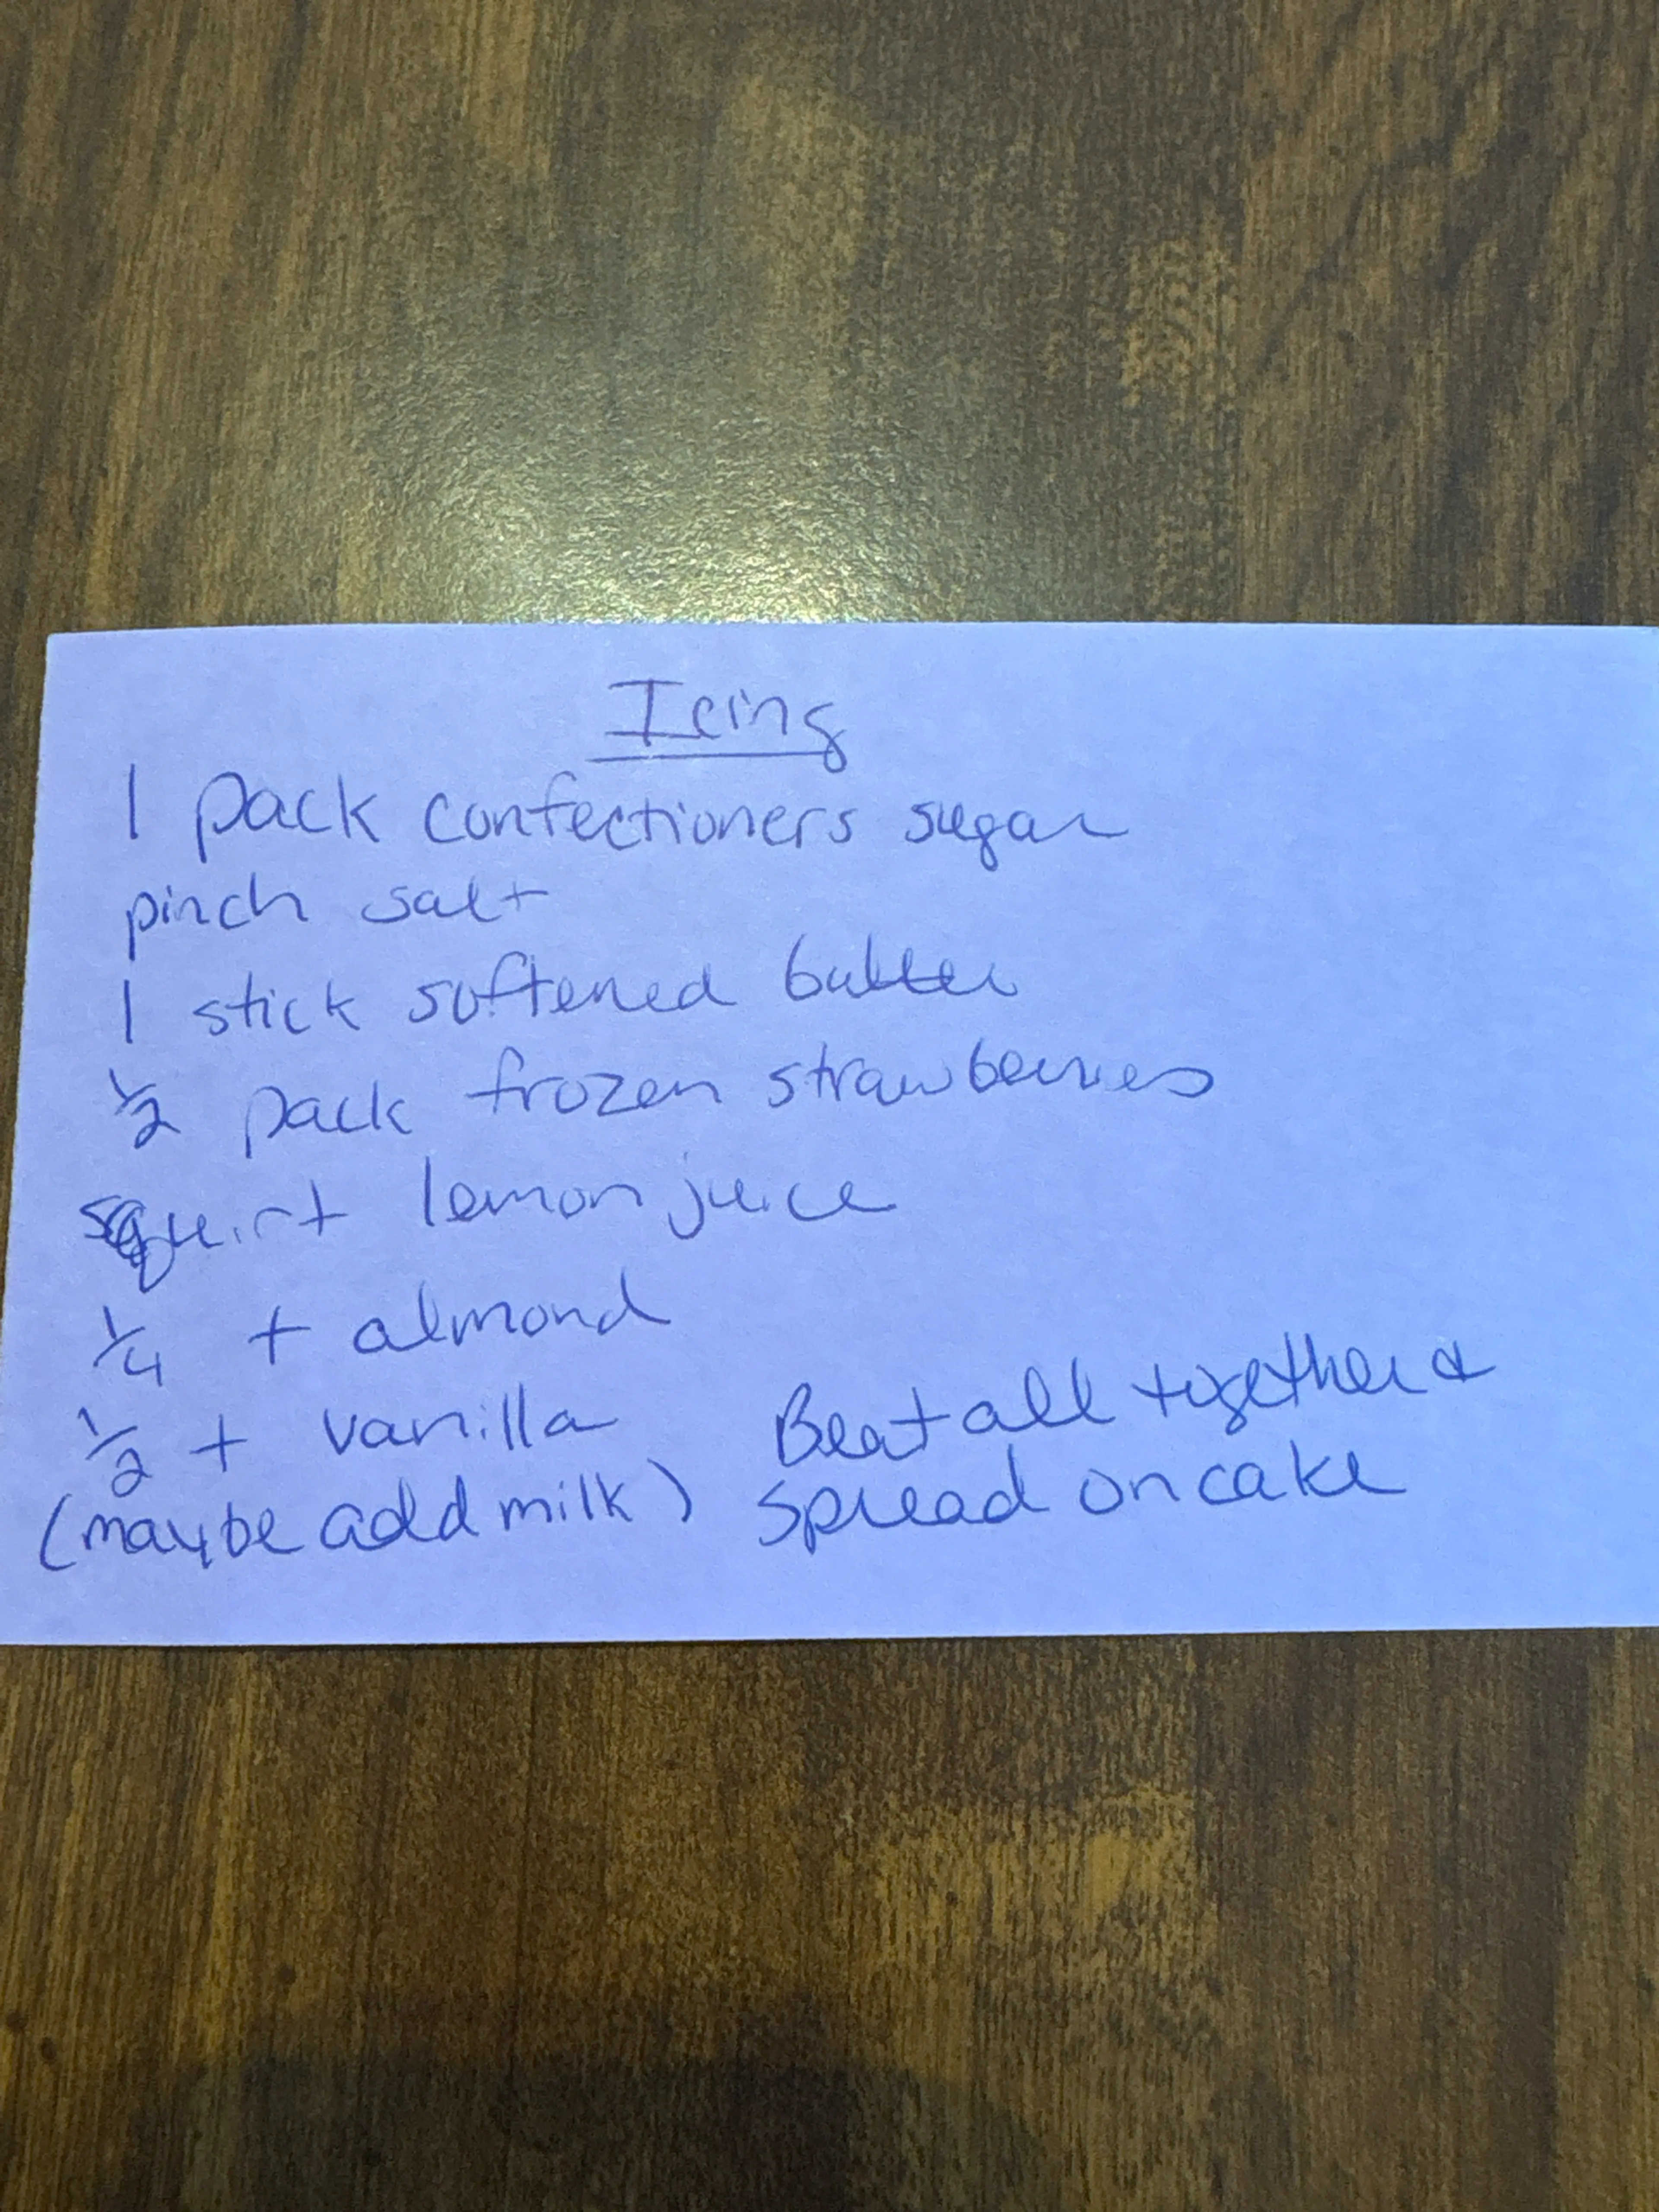 Icing
1 pack confectioners sugar
pinch salt
1 stick softened butter
1/2 pack frozen strawberries
squirt lemon juice
1/4 t almond
1/2 t vanilla
(maybe add milk)
Beat all together &
spread on cake